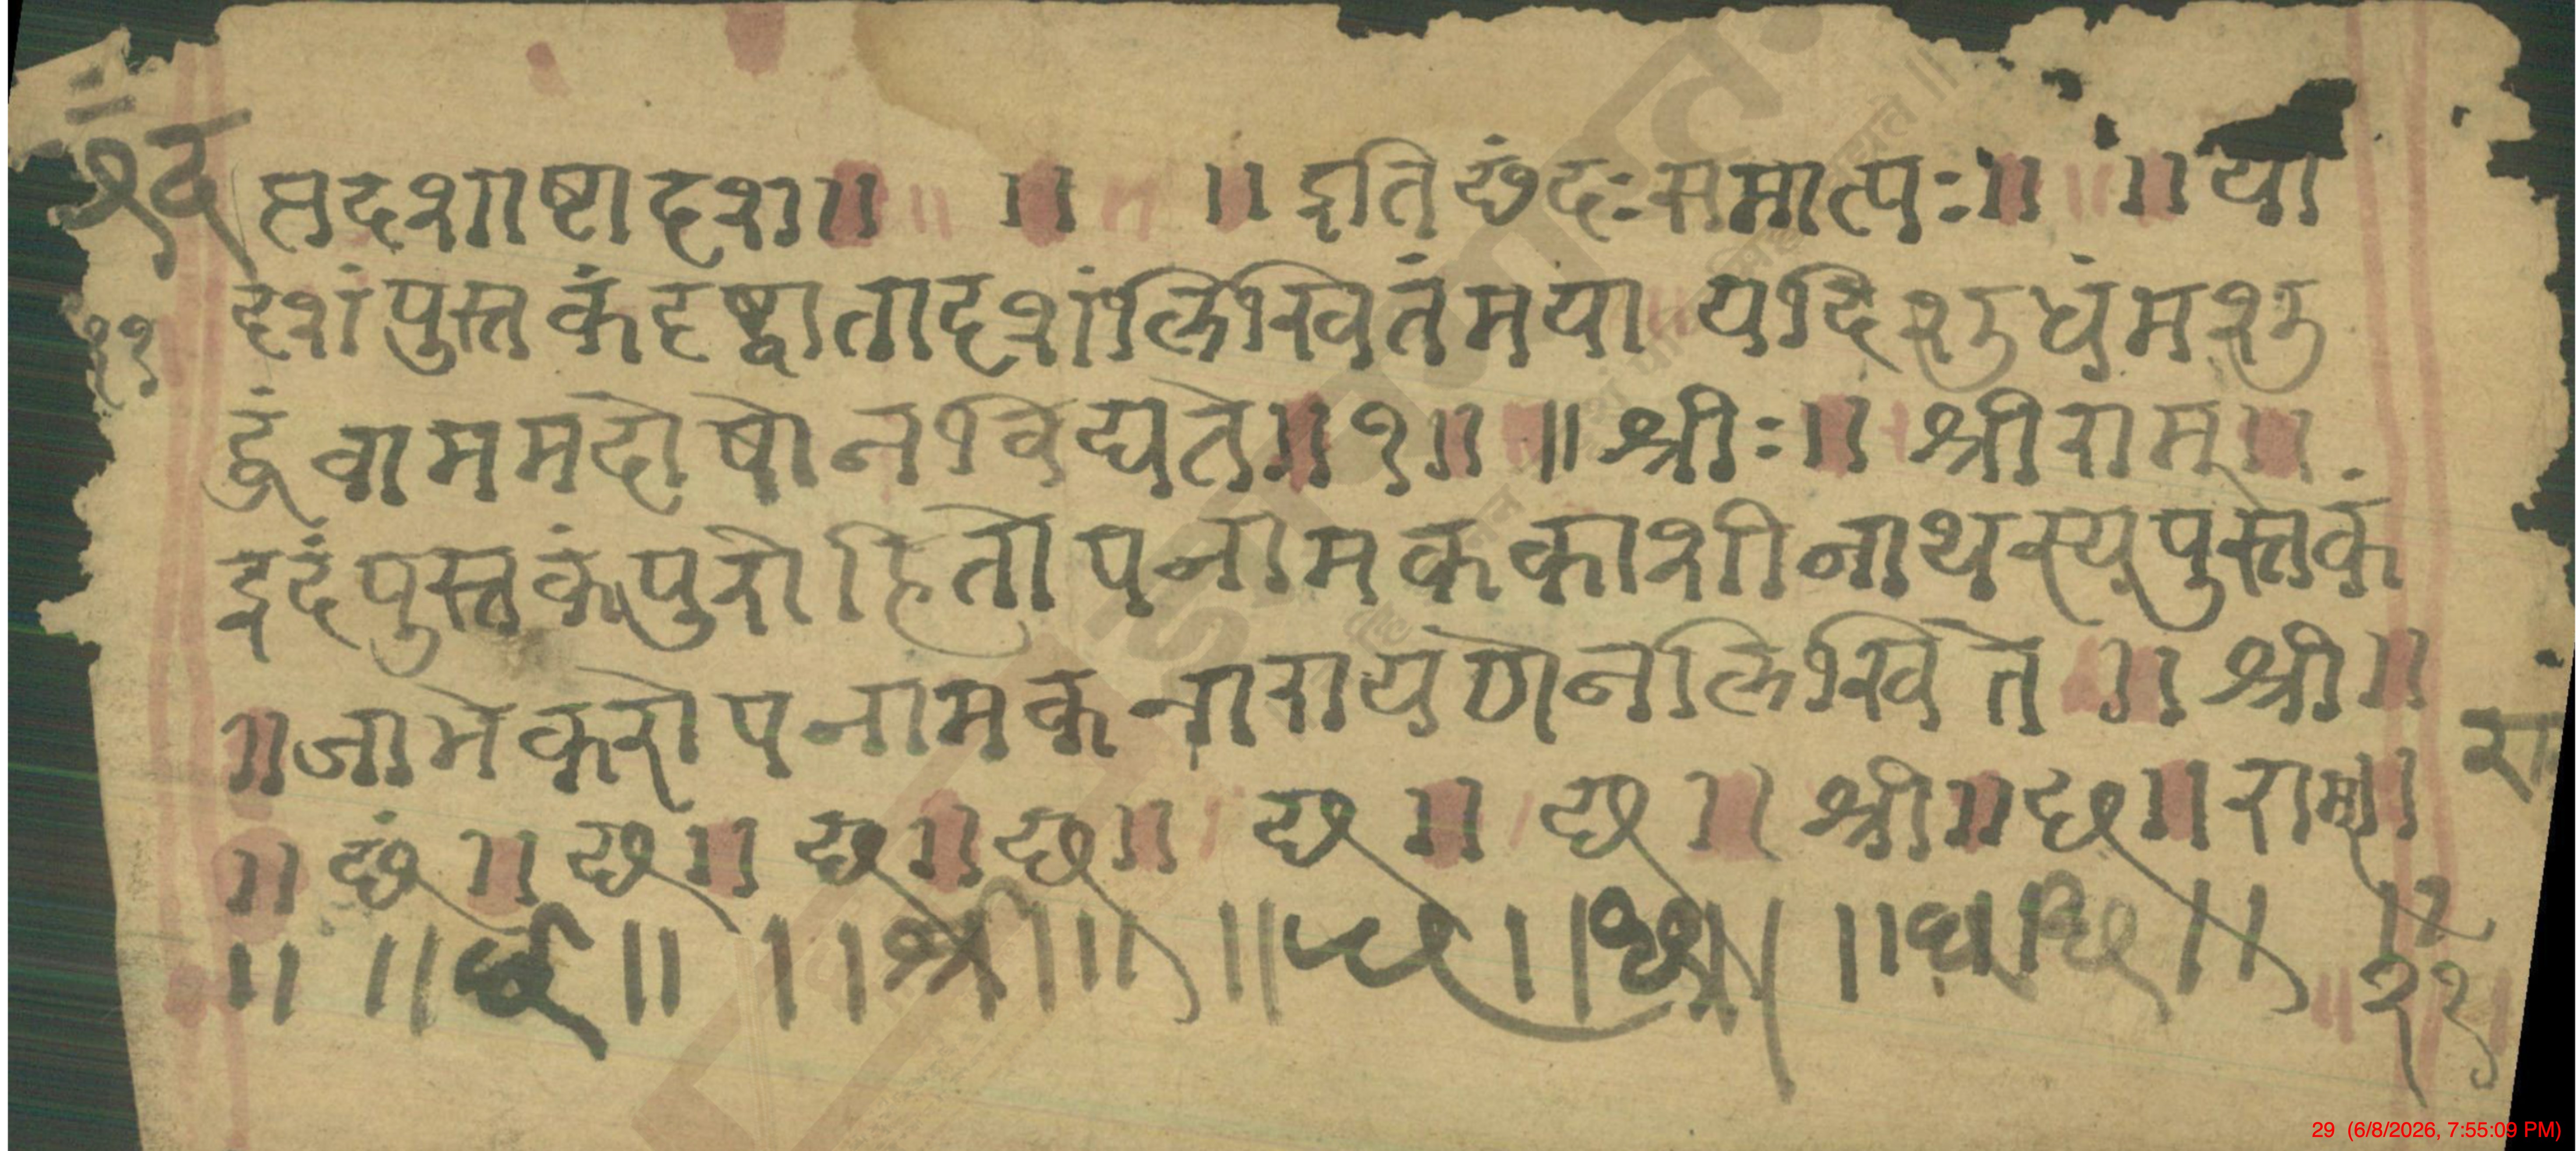 छंद
११
प्तदशाष्टादश॥ ॥ ॥ इति छंदःसमाप्तः॥ ॥ या
दृशंपुस्तकंदृष्ट्वातादृशंलिखितंमया यदिशुधंमशु
द्धंवाममदोषोनविद्यते॥१॥ ॥श्रीः॥ श्रीराम॥
इदंपुस्तकंपुरोहितोपनामककाशीनाथस्यपुस्तकं
॥जामेकरोपनामकनारायणेनलिखितं ॥ श्री॥
॥ छं ॥ छ ॥ छ ॥ छ ॥ छ ॥ छ ॥ श्री॥ छ ॥ राम॥
॥ ॥ छ ॥ ॥ श्री ॥ ॥
रा
११
29 (6/8/2026, 7:55:09 PM)